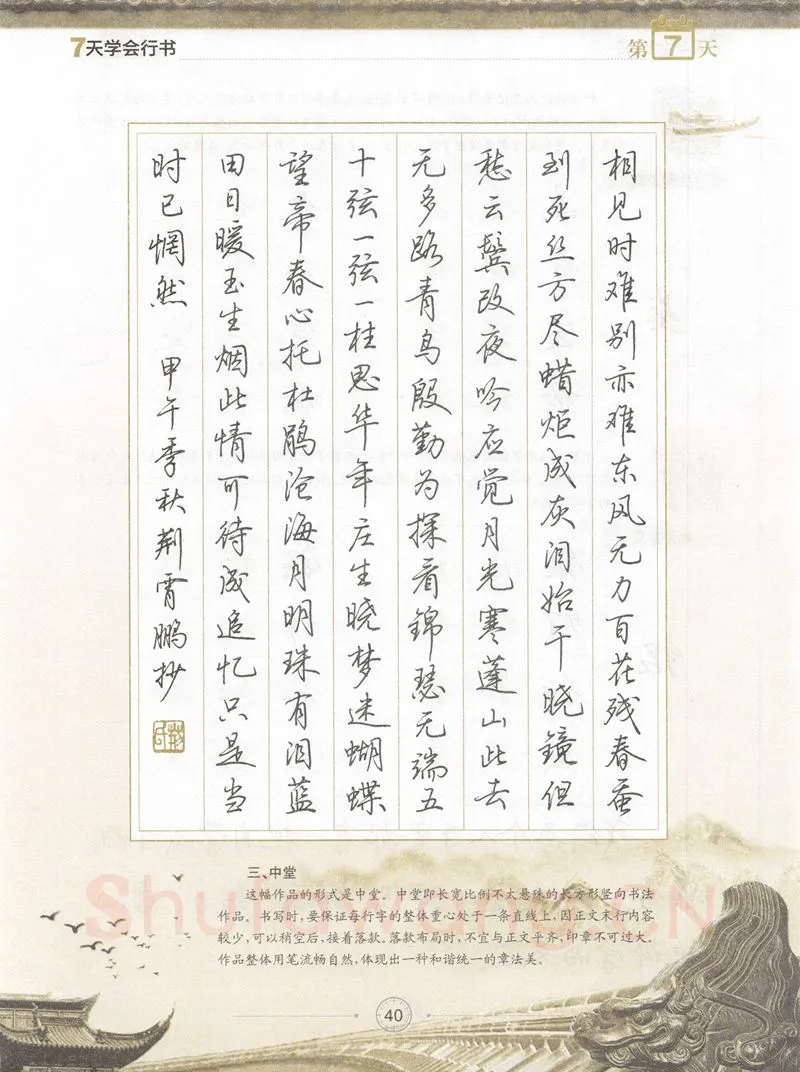 7天学会行书
第7天
相见时难别亦难东风无力百花残春蚕
到死丝方尽蜡炬成灰泪始干晓镜但
愁云鬓改夜吟应觉月光寒蓬山此去
无多路青鸟殷勤为探看锦瑟无端五
十弦一弦一柱思华年庄生晓梦迷蝴蝶
望帝春心托杜鹃沧海月明珠有泪蓝
田日暖玉生烟此情可待成追忆只是当
时已惘然 甲午季秋荆霄鹏抄
三、中堂
这幅作品的形式是中堂。中堂即长宽比例不太悬殊的长方形竖向书法
作品。书写时，要保证每行字的整体重心处于一条直线上，因正文末行内容
较少，可以稍空后，接着落款。落款布局时，不宜与正文平齐，印章不可过大。
作品整体用笔流畅自然，体现出一种和谐统一的章法美。
40